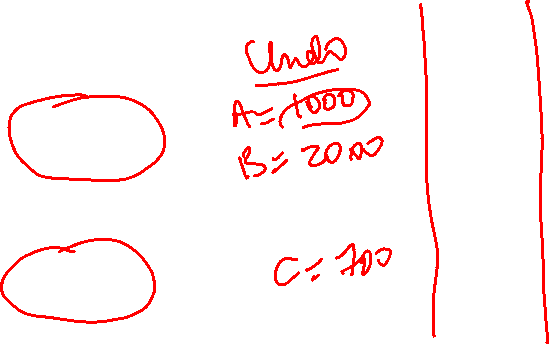 Undo
A = 1000
B = 2000
C = 700